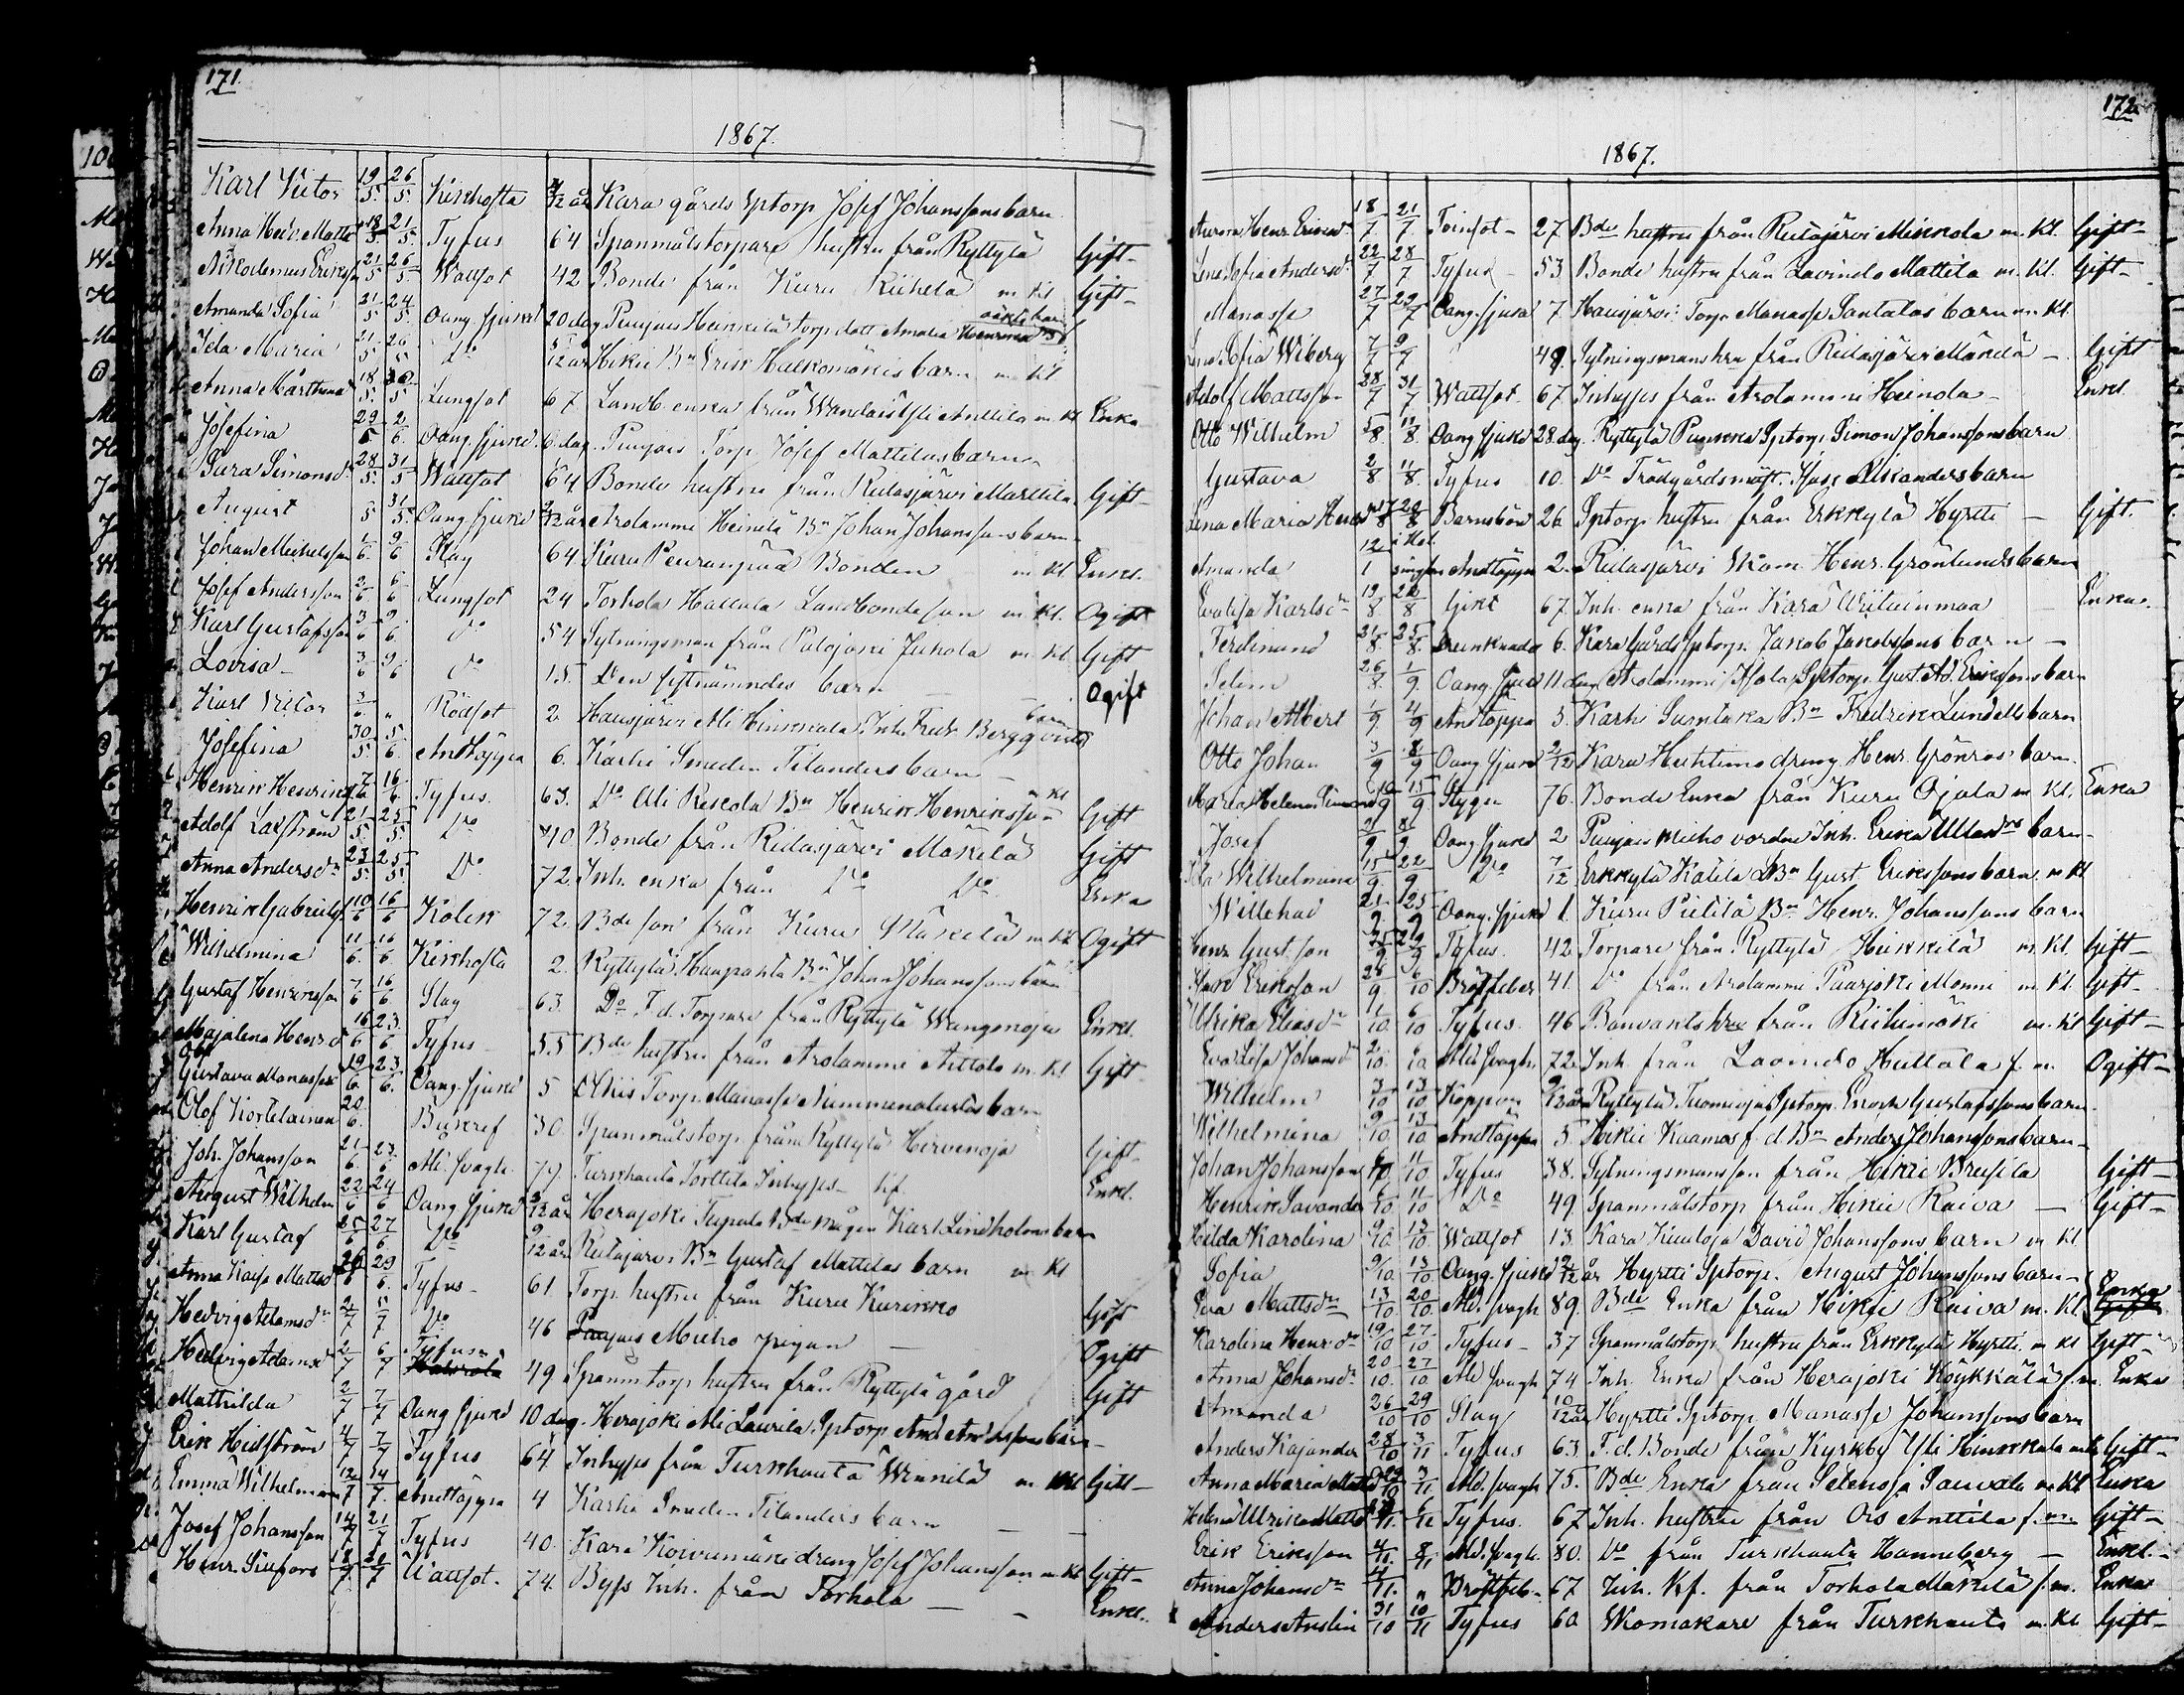 171.
1867.
Karl Victor 19/5. 26/5. Kikhosta /12 år Kara gårds Sptorp. Josef Johanssons barn
Anna Hedv. Matts 18/5. 21/5. Tyfus 64 Spanmålstorpare hustru från Ryttylä Gift
Nikodemus Eriksson 21/5 26/5. Wattsot 42 Bonde från Kuru m. kl Gift
Amanda Sofia 21/5 24/5. Oäng. sjukd 20 dag Punjais Heinkilä torp. dott Amalia oäkta barn
Ida Maria 21/5 26/5 Do /12 år Hikiä Bn Erik barn m kl
Anna Mårtensd 18/5. 5 Lungsot 67 Landb. enka från Anttila m. kl Enka
Josefina 29/5 2/6. Oäng. sjukd. 6 dag. Punjais Torp. Josef Mattilas barn
Sara Simonsd 28/5. 31/5 Wattsot 64 Bonde hustru från Ridasjärvi Marttila Gift
August 5 31/5 Oäng. sjukd /12 år Arolammi Heinilä Bn Johan Johanssons barn
Johan Michelsson 1/6. 9/6 Slag 64 Kuru Bonden m kl Enkl.
Josef Andersson 2/6 6/6 Lungsot 24 Torhola Hallula Landbondeson m kl. Ogift
Karl Gustafsson 3/6 9/6. Do 54 Sytningsman från Palojoki Jukola m. kl Gift
Lovisa 3/6 9/6 Do 15. Den sistnämndes barn Ogift
Karl Victor 3/6. " Rödsot 2 Hausjärvi Ali Hinkkala Inh. Fredr. Bergqvists barn
Josefina 30/5 5/6. Andtäppa 6. Karhi Smeden Tilanders barn
Henrik Henriksson 7/6. 16/6. Tyfus. 63. Do Ali Reskola Bn Henrik Henriksson m kl Gift
Adolf Laxström 21/5. 25/5 Do 40 Bonde från Ridasjärvi Mäkelä Gift
Anna Andersdr 23/5. 25/5. Do. 72. Inh. enka från Do Do. Enka
Henrik Gabrielss 10/6 16/6 Kolik 72. Bde son från Kuru Mäkelä m. kl Ogift
Wilhelmina 11/6. 16/6. Kikhosta 2. Ryttylä Haapahta Bn Johan Johanssons barn
Gustaf Henriksson 7/6 16/6 Slag 63. Do F. d. Torpare från Ryttylä Enkl.
Majalena Henrsd 16/6 23/6 Tyfus 55 Bde hustru från Arolammi Anttola m. kl Gift
Gustava Manasse 19/6. 23/6. Oäng. sjukd 5 Torp. Manasse barn
Olof Kortelainen 20/6. Bukref 30 Spanmålstorp. från Ryttylä Hervenoja Gift
Joh. Johansson 21/6. 23/6. Åld. svagh. 79. Turkhauta Torttila Inhyss Enkl.
August Wilhelm 22/6 24/6 Oäng sjukd /12 år Herajoki Tupala Bde mågen Karl Lindholms barn
Karl Gustaf 25/6 27/6 Do 9/12 år Ridasjärvi Bn Gustaf Mattilas barn m kl
Anna Kaisa Mattsd 26/6 29/6. Tyfus 61 Torp. hustru från Kuru Gift
Hedvig Adamsdr 2/7 5/7 Do 46 Punjais Mieho pigan Ogift
Hedvig Adamsd 2/7 6/7 Tyfus 49 Spanm torp. hustru från Ryttylä gård Gift
Mathilda 2/7 7/7 Oäng sjukd 10 dag. Herajoki Ali Laurila Sptorp And. Anderssons barn
Erik Hulström 4/7 7/7 Tyfus 64 Inhyss från Turkhauta m. kl Gift
Emma Wilhelmina 12/7 14/7. Andtäppa 4 Karhi Smeden Tilanders barn
Josef Johansson 14/7 21/7 Tyfus 40. Kara Koivumäki dräng Josef Johansson m kl Gift
Henr. Sinfors 18/7 21/7 Wattsot. 74. Byss Inh. från Torhola Enkl.
172.
1867.
Aurora Henr. Eriksd 18/7 21/7. Tvinsot 27 Bde hustru från Ridasjärvi Mikkola m. kl. Gift
Lena Sofia Andersdr 22/7 28/7 Tyfus 53 Bonde hustru från Lavindo Mattila m. kl. Gift
Manasse 27/7 29/7 Oäng. sjukd 7 Hausjärvi Torp. Manasse Santalas barn m. kl.
Lena Sofia Wiberg 7/7 9/7 49. Sytningsmans hru från Ridasjärvi Gift
Adolf Mattsson 28/7 31/7 Wattsot 67 Inhyses från Arolammi Heinola Enkl
Otto Wilhelm 5/8 11/8. Oäng sjukd 28 dag. Ryttylä Punkka Sptorp. Simon Johanssons barn
Gustava 2/8 11/8. Tyfus 10. Do Trädgårdsmäst. Nikanders barn
Lena Maria Henrsd 17/8 20/8 Barnsbörd 26 Sptorp. hustru från Erkkylä Hyrtti Gift.
Amanda 12/1 Andtäppa 2. Ridasjärvi Skom. Henr. Grönlunds barn
Evalisa Karlsdr 19/8 /8 Gikt 67. Inh. enka från Kara Enka.
Ferdinand 21/8. 25/8. Drunknade 6. Kara Gårds Sptorp. Jakob Jakobssons barn
Selim 26/8. 1/9. Oäng. sjukd 11 dag Arolammi Sptorp. Gust. Ad. Erikssons barn
Johan Albert 1/9. 4/9 Andtäppa 5. Karhi Bn Fredrik Lundells barn
Otto Johan 3/9 8/9 Oäng sjukd 2/12 Kara Huhtimo dräng Henr. Grönroos barn
Maria Helena Simonsd 10/9 15/9 Stygn 76. Bonde Enka från Kuru Ojala m kl. Enka
Josef 8/9 Oäng sjukd 2 Punjais Inh. Erika barn
Ida Wilhelmina 15/9. 22/9 Do 7/12 Erkkylä Katila LBn Gust. Erikssons barn m kl
Willehad 21/9. 25/9 Oäng. sjukd 1. Kuru Pietilä Bn Henr. Johanssons barn
Henr. Gust. son 25/9 29/9 Tyfus. 42 Torpare från Ryttylä Heikkilä m. kl. Gift
Eriksson 28/9 6/10 Bröstfeber 41. Do från Arolammi Paarjoki Monni m. kl. Gift
Ulrika Eliasdr 1/10. 6/10 Tyfus. 46 Banvakts hru från Riihimäki m. kl Gift
Eva Lisa Johansdr 2/10. 6/10 Åld svagh. 72. Inh. från Lavindo Huttala f. m. Ogift
Wilhelm 3/10 13/10 Koppor 9/12 år Ryttylä Tuomioja Sptorp. Enoch Gustafssons barn
Wilhelmina 9/10. 13/10 Andtäppa 5. Hikiä Kaamas f. d. Bn Anders Johanssons barn
Johan Johansson /10 11/10 Tyfus 38. Sytningsmansson från Hikiä Gift
Henrik Savander 6/10 11/10 Do 49. Spanmålstorp från Hikiä Raiva Gift
Hilda Karolina 9/10. 13/10. Wattsot 13 Kara David Johanssons barn m kl
Sofia 9/10. 13/10 Oäng. sjukd /12 år Hyrtti Sptorp. August Johanssons barn
Eva Mattsdr 13/10 20/10. Åld. svagh 89. Bde Enka från Hikiä Raiva m. kl Enka
Karolina Henr.dr 19/10 27/10 Tyfus 37 Spanmålstorp hustru från Erkkylä Hyrtti m kl Gift
Anna Johansdr 20/10. 27/10 Åld svagh 74 Inh. Enka från Herajoki Köykkälä f. m. Enka
Amanda 26/10 29/10 Slag 10/12 år Hyrtti Sptorp. Manasse Johanssons barn
Anders Kajander 28/10 3/11 Tyfus 63. F. d. Bonde från Kyrkby Yli Hinkkala m kl Gift
Anna Maria Mattsd /10 3/11 Åld. svagh 75. Bde Enka från m. kl Enka
Helena Ulrika Mattsd /11. 6/11 Tyfus. 67 Inh. hustru från Ois Anttila f. m. Gift
Erik Eriksson 4/11. 8/11 Åld. svagh. 80. Do från Turkhauta Hanneberg Enkl.
Anna Johansdr /11. " Bröstfeb. 67 Inh. från Torhola Mäkilä f. m. Enka
Anders Anslin 31/10 10/11 Tyfus 60 Skomakare från Turkhauta m. kl Gift